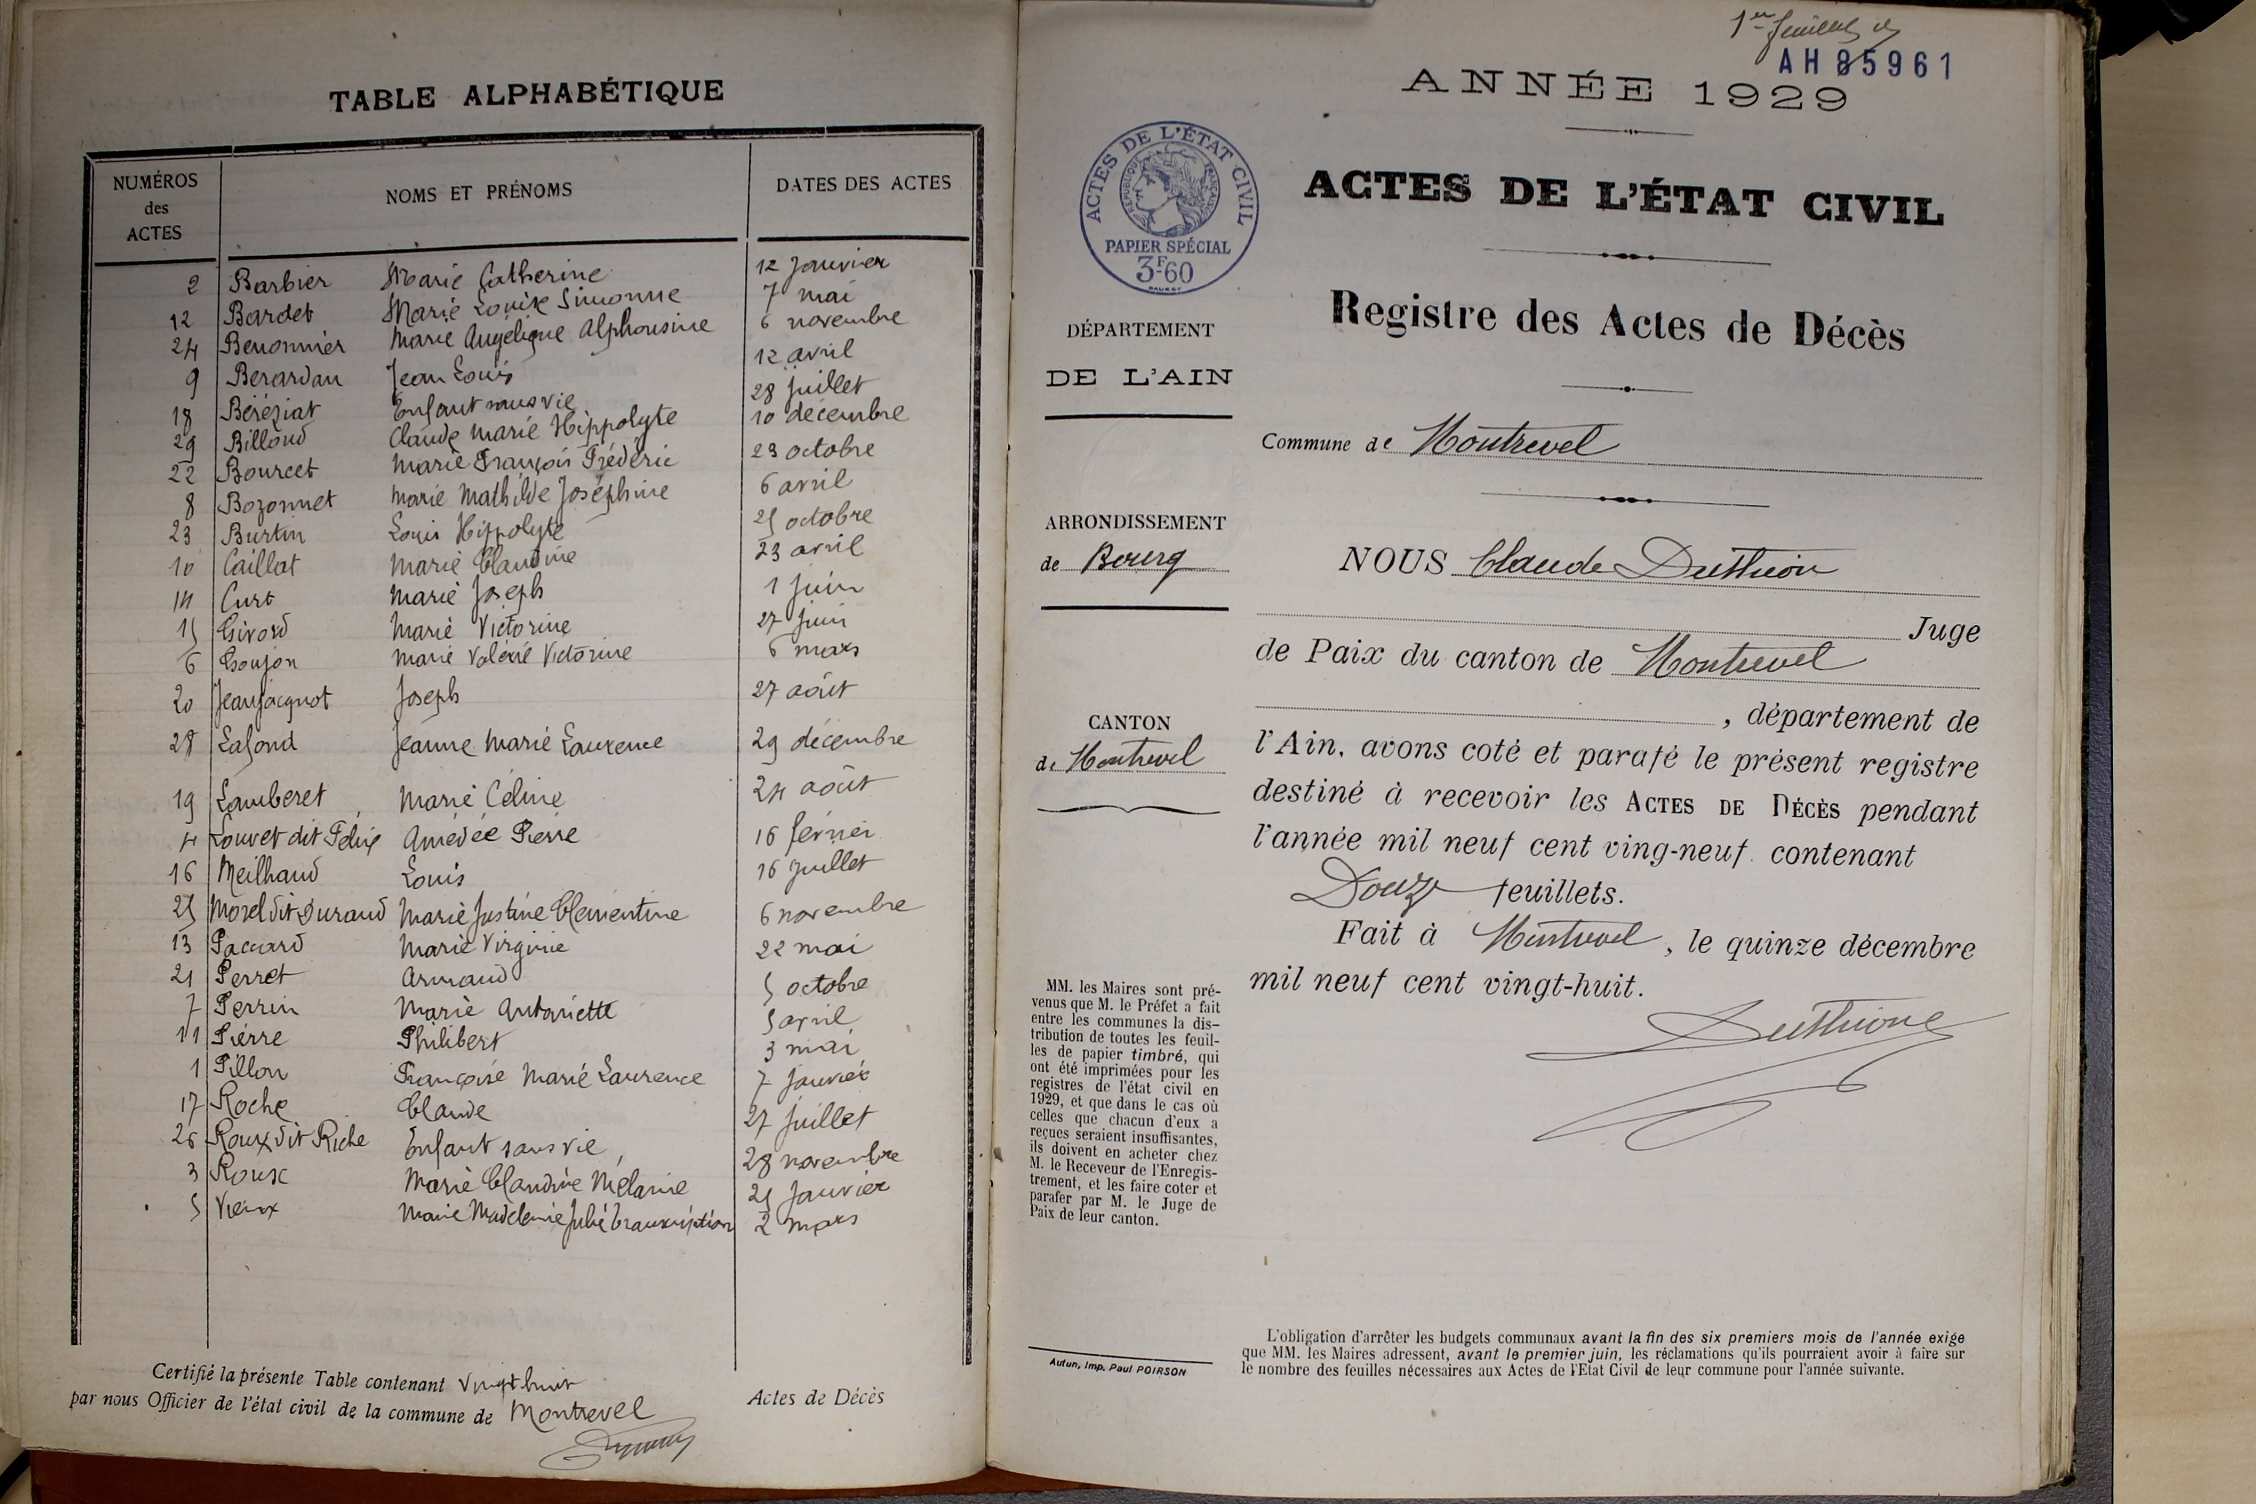 TABLE ALPHABÉTIQUE
NUMÉROS des ACTES | NOMS ET PRÉNOMS | DATES DES ACTES
2 Barbier Marie Catherine 12 Janvier
12 Bardet Marie Louise Simonne 7 mai
24 Benonnier Marie Angélique Alphonsine 6 novembre
9 Berardan Jean Louis 12 avril
18 Béréziat Enfant sans vie 28 juillet
29 Billoud Claude Marie Hippolyte 10 décembre
22 Bourcet Marie François Frédéric 23 octobre
8 Bozonnet Marie Mathilde Joséphine 6 avril
23 Burtin Louis Hippolyte 25 octobre
10 Caillat Marie Claudine 23 avril
14 Curt Marie Joseph 1 juin
15 Givord Marie Victorine 27 juin
6 Goujon Marie Valérie Victorine 6 mars
20 Jeanjacquot Joseph 27 août
28 Lafond Jeanne Marie Laurence 29 décembre
19 Lamberet Marie Céline 24 août
4 Louvet dit Félix Amédée Pierre 16 février
16 Meilhaud Louis 16 juillet
25 Morel dit Durand Marie Justine Clémentine 6 novembre
13 Paccard Marie Virginie 22 mai
21 Perret Armand 5 octobre
7 Perrin Marie Antoinette 5 avril
11 Pierre Philibert 3 mai
1 Pillon Françoise Marie Laurence 7 Janvier
17 Roche Claude 27 juillet
26 Roux dit Riche Enfant sans vie 28 novembre
3 Roux Marie Claudine Mélanie 25 Janvier
5 Vieux Marie Madeleine Julie transcription 2 mars
Certifié la présente Table contenant vingt huit Actes de Décès
par nous Officier de l'état civil de la commune de Montrevel
1er feuillet
AH 85961
ANNÉE 1929
ACTES DE L'ÉTAT CIVIL
RÉPUBLIQUE FRANÇAISE
PAPIER SPÉCIAL
3F-60
ACTES DE L'ÉTAT CIVIL
Registre des Actes de Décès
DÉPARTEMENT
DE L'AIN
Commune de Montrevel
ARRONDISSEMENT
de Bourg
NOUS Claude Duthion
Juge
de Paix du canton de Montrevel
, département de
CANTON
de Montrevel
l'Ain, avons coté et parafé le présent registre
destiné à recevoir les ACTES DE DÉCÈS pendant
l'année mil neuf cent ving-neuf contenant
Douze feuillets.
Fait à Montrevel, le quinze décembre
mil neuf cent vingt-huit.
Duthion
MM. les Maires sont pré-
venus que M. le Préfet a fait
entre les communes la dis-
tribution de toutes les feuil-
les de papier timbré, qui
ont été imprimées pour les
registres de l'état civil en
1929, et que dans le cas où
celles que chacun d'eux a
reçues seraient insuffisantes,
ils doivent en acheter chez
M. le Receveur de l'Enregis-
trement, et les faire coter et
parafer par M. le Juge de
Paix de leur canton.
Autun, Imp. Paul POIRSON
L'obligation d'arrêter les budgets communaux avant la fin des six premiers mois de l'année exige
que MM. les Maires adressent, avant le premier juin, les réclamations qu'ils pourraient avoir à faire sur
le nombre des feuilles nécessaires aux Actes de l'Etat Civil de leur commune pour l'année suivante.